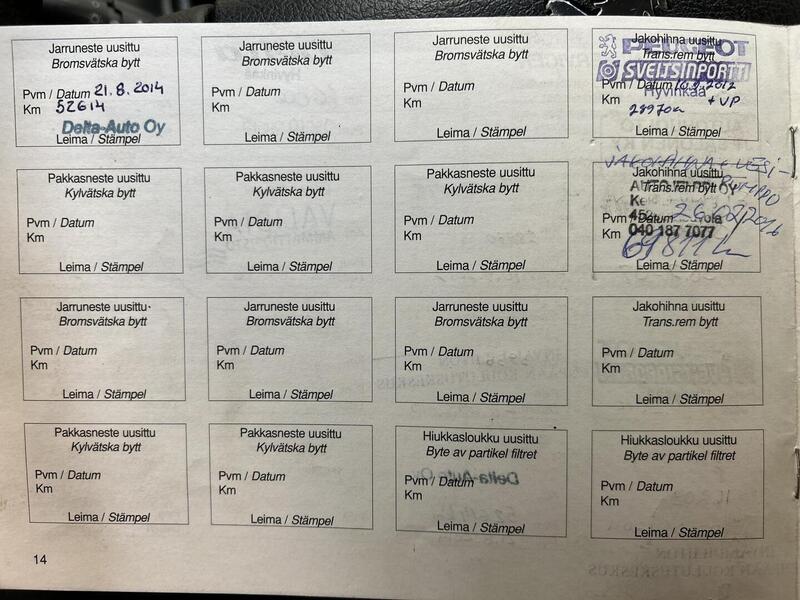 Jarruneste uusittu
Bromsvätska bytt
Pvm / Datum 21.8.2014
Km 52614
Delta-Auto Oy
Leima / Stämpel
Jarruneste uusittu
Bromsvätska bytt
Hyvinkaa
Pvm / Datum
Km
Leima / Stämpel
Jarruneste uusittu
Bromsvätska bytt
Pvm / Datum
Km
Leima / Stämpel
PEUGEOT
Jakohihna uusittu
Trans.rem bytt
SVEITSINPORTTI
Hyvinkää
Pvm / Datum
Km
28970
+ VP
Leima / Stämpel
Pakkasneste uusittu
Kylvätska bytt
Pvm / Datum
Km
Leima / Stämpel
Pakkasneste uusittu
Kylvätska bytt
Pvm / Datum
Km
Leima / Stämpel
Pakkasneste uusittu
Kylvätska bytt
Pvm / Datum
Km
Leima / Stämpel
JAKOHIHNA + VESI-
PUMPPU
Jakohihna uusittu
Trans.rem bytt
OY
Pvm / Datum
Km
040 187 7077
69811
Leima / Stämpel
Jarruneste uusittu
Bromsvätska bytt
Pvm / Datum
Km
Leima / Stämpel
Jarruneste uusittu
Bromsvätska bytt
Pvm / Datum
Km
Leima / Stämpel
Jarruneste uusittu
Bromsvätska bytt
Pvm / Datum
Km
Leima / Stämpel
Jakohihna uusittu
Trans.rem bytt
Pvm / Datum
Km
Leima / Stämpel
Pakkasneste uusittu
Kylvätska bytt
Pvm / Datum
Km
Leima / Stämpel
Pakkasneste uusittu
Kylvätska bytt
Pvm / Datum
Km
Leima / Stämpel
Hiukkasloukku uusittu
Byte av partikel filtret
Delta-Auto Oy
Pvm / Datum
Km
Leima / Stämpel
Hiukkasloukku uusittu
Byte av partikel filtret
Pvm / Datum
Km
Leima / Stämpel
14